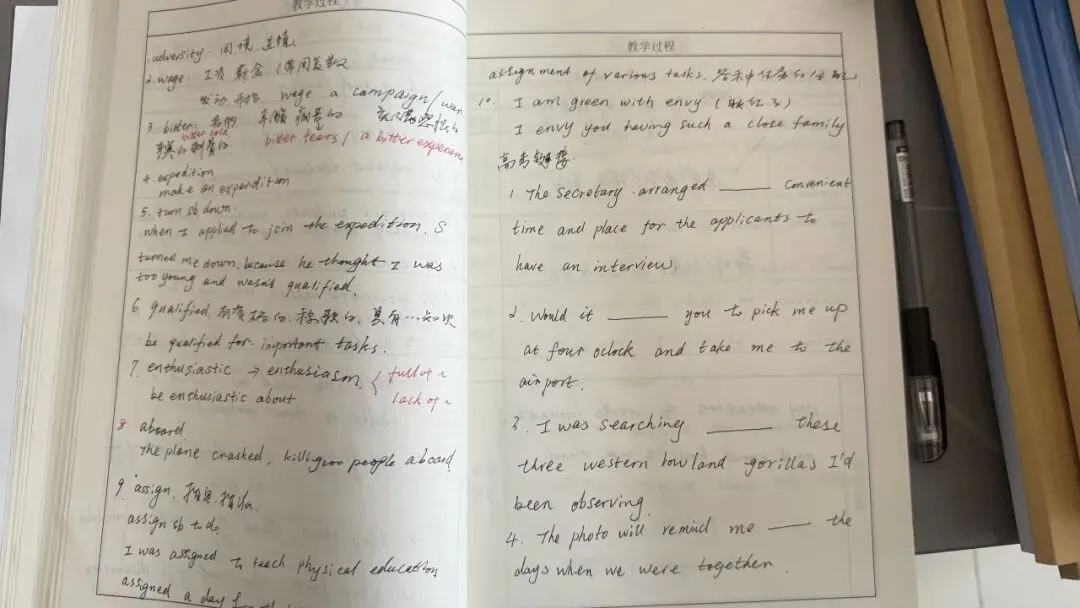 教学过程
1. adversity. 困境. 逆境
2. wage. 工资 薪金. (常用复数
发动 wage a campaign/war
3. bitter. 痛苦的
bitter cold
刺骨的. bitter tears / a bitter experience
4. expedition
make an expendition
5. turn sb down.
when I applied to join the expedition. S
turned me down, because he thought I was
too young and wasn't qualified.
6. qualified. 有资格的. 称职的. 具有…知识
be qualified for important tasks.
7. enthusiastic → enthusiasm. { full of ~
lack of ~
be enthusiastic about
8 aboard
The plane crashed, killing 200 people aboard.
9. assign. 指定. 指派.
assign sb to do
I was assigned to teach physical education
assigned a day for
教学过程
assignment of various tasks. 各种任务的分配
10. I am green with envy (眼红了)
I envy you having such a close family
高考链接.
1 The secretary arranged ____ convenient
time and place for the applicants to
have an interview.
2. Would it ____ you to pick me up
at four oclock and take me to the
airport.
3. I was searching ____ these
three western lowland gorillas I'd
been observing.
4. The photo will remind me ____ the
days when we were together.